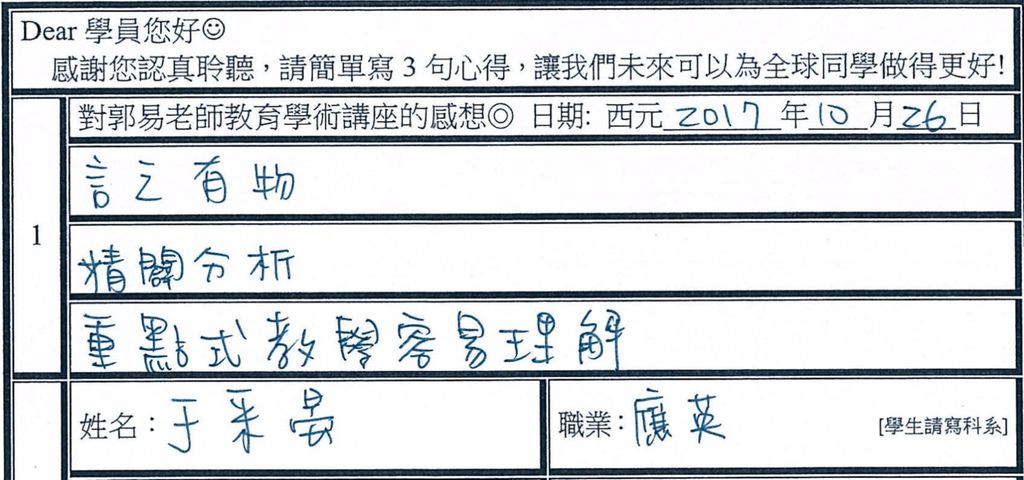 Dear 學員您好☺
感謝您認真聆聽，請簡單寫 3 句心得，讓我們未來可以為全球同學做得更好!
對郭易老師教育學術講座的感想◎ 日期: 西元 2017 年 10 月 26 日
1
言之有物
精闢分析
重點式教學容易理解
姓名：于采晏
職業：應英 [學生請寫科系]